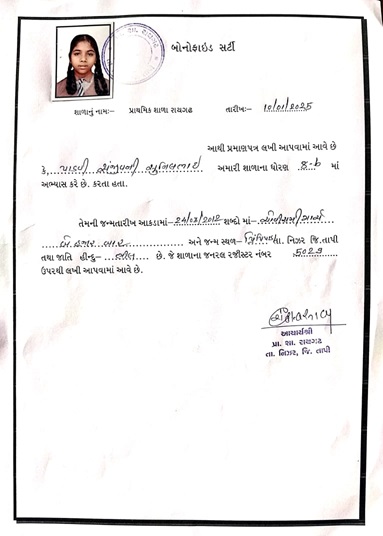 બોનોફાઇડ સર્ટી
પ્રા. શા. રાયગઢ
શાળાનું નામઃ– પ્રાથમિક શાળા રાયગઢ તારીખઃ– 10/01/2025
આથી પ્રમાણપત્ર લખી આપવામાં આવે છે
કે, પાડવી સુનિલભાઇ અમારી શાળાના ધોરણ 8-b માં
અભ્યાસ કરે છે. કરતા હતા.
તેમની જન્મતારીખ આકડામાં– 24/03/2012 શબ્દો માં– ચોવીસમી માર્ચ
બે હજાર બાર અને જન્મ સ્થળ– તા. નિઝર જિ.તાપી
તથા જાતિ હીન્દુ– ભીલ છે. જે શાળાના જનરલ રજીસ્ટર નંબર
ઉપરથી લખી આપવામાં આવે છે.
આચાર્યશ્રી
પ્રા. શા. રાયગઢ
તા. નિઝર, જિ. તાપી